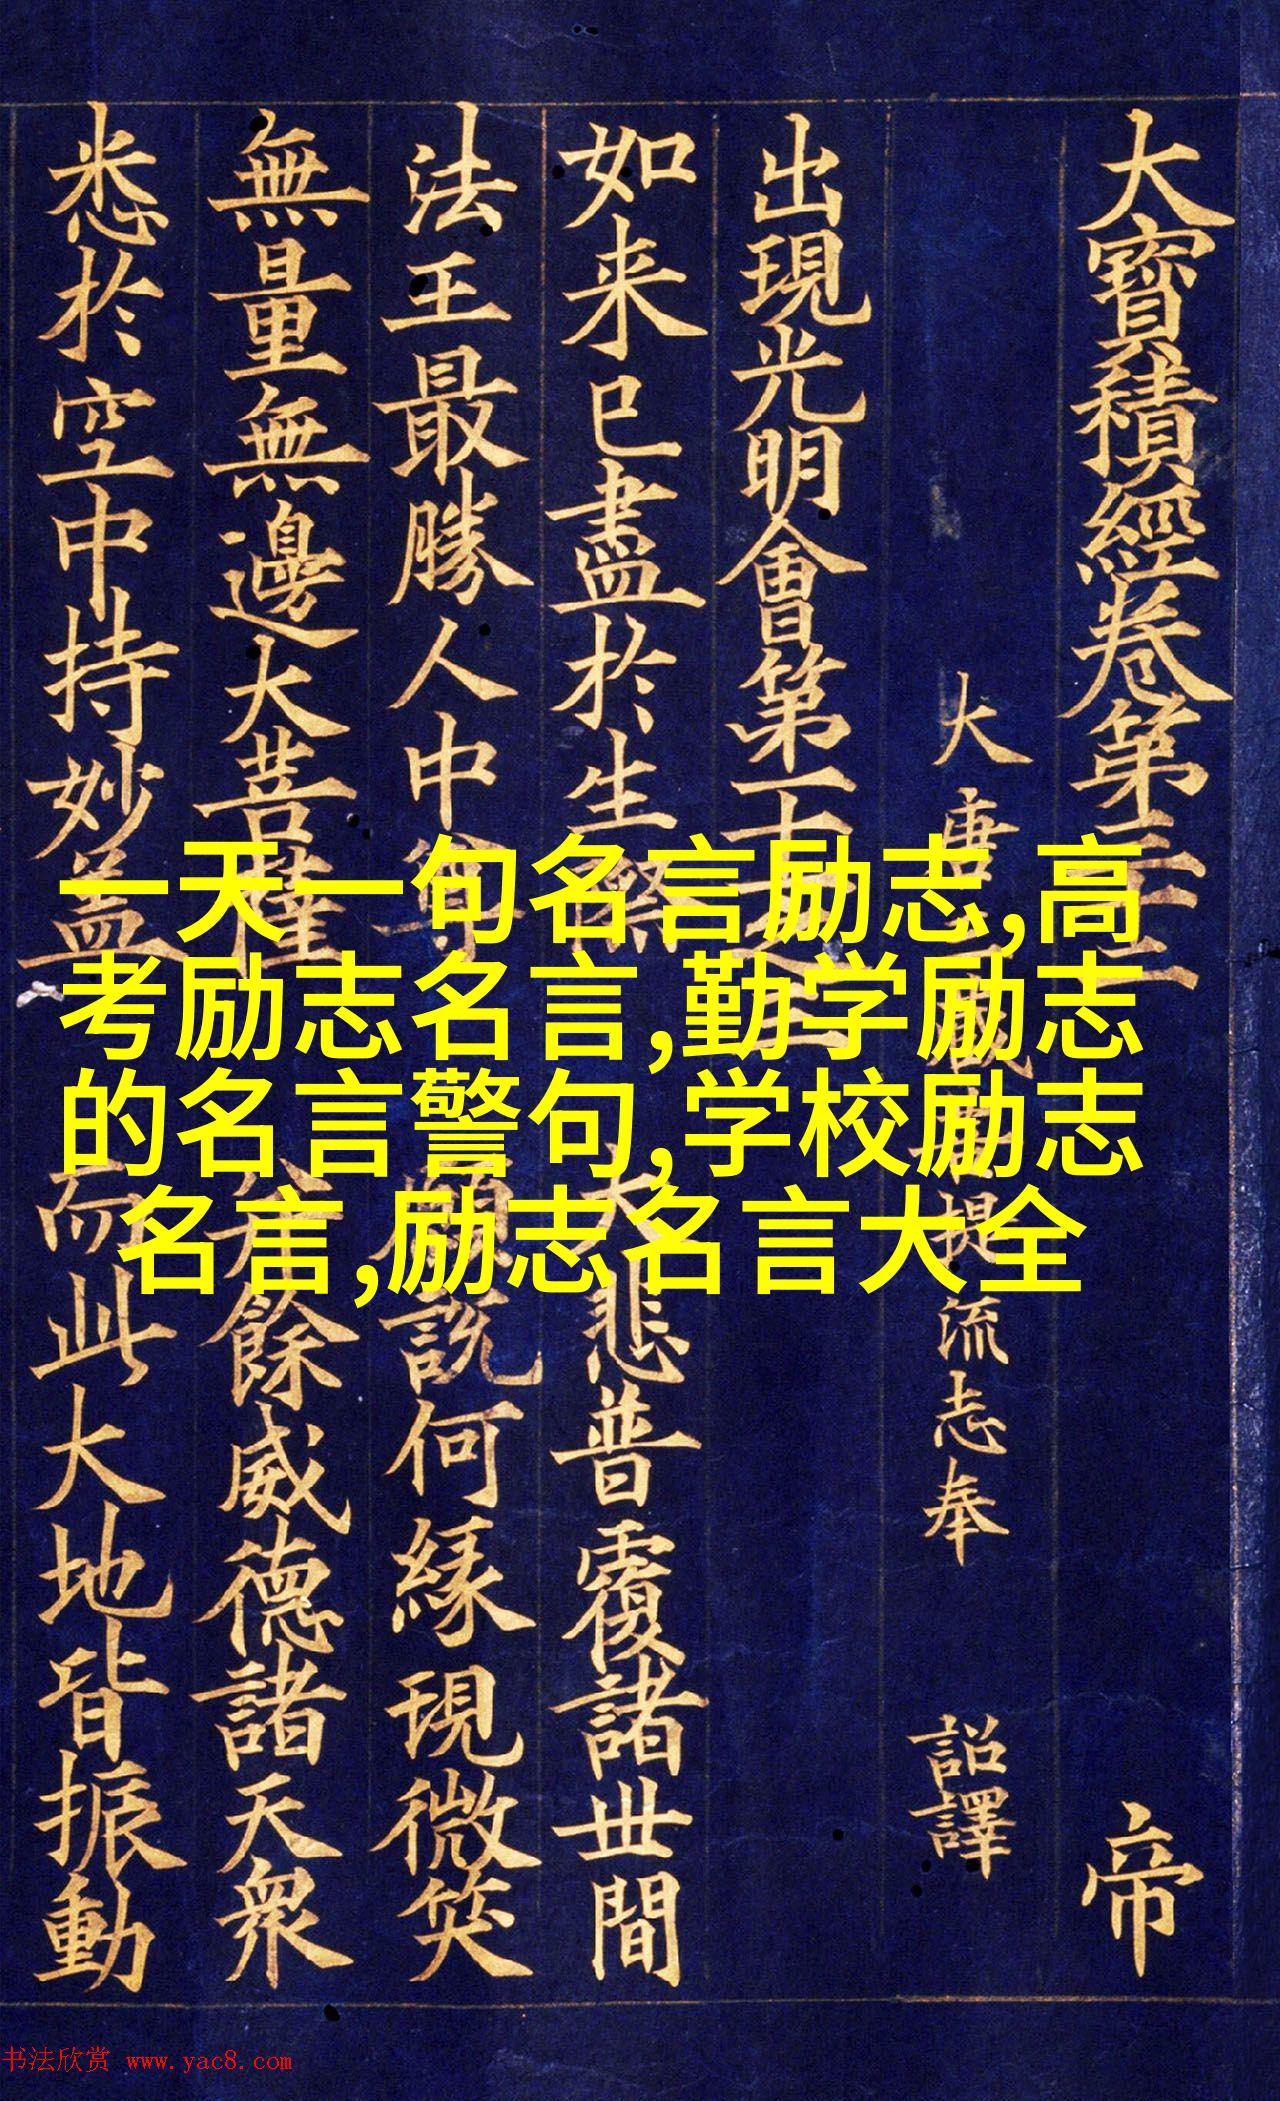 大寶積經卷第三十三
帝
大唐三藏菩提流志奉
詔譯
出現光明會第十一之三
如来已盡於生際
大悲普覆諸世間
法王最勝人中尊
願說何緣現微笑
無量無邊大菩薩
餘威德諸天衆
悉於空中持妙盖
而此大地皆振動
一天一句名言励志,高
考励志名言,勤学励志
的名言警句,学校励志
名言,励志名言大全
书法欣赏 www.yac8.com